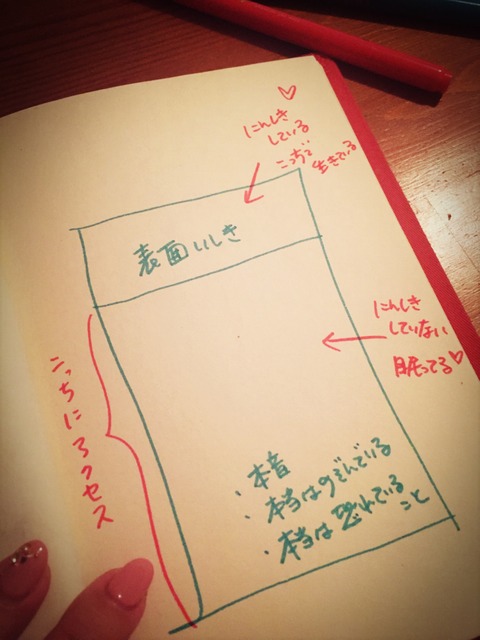 ♡
にんしき
している
こっちで
生きている
表面いしき
にんしき
していない
眠ってる♡
こっちにアクセス
・本音
・本当はのぞんでいる
・本当は恐れている
こと